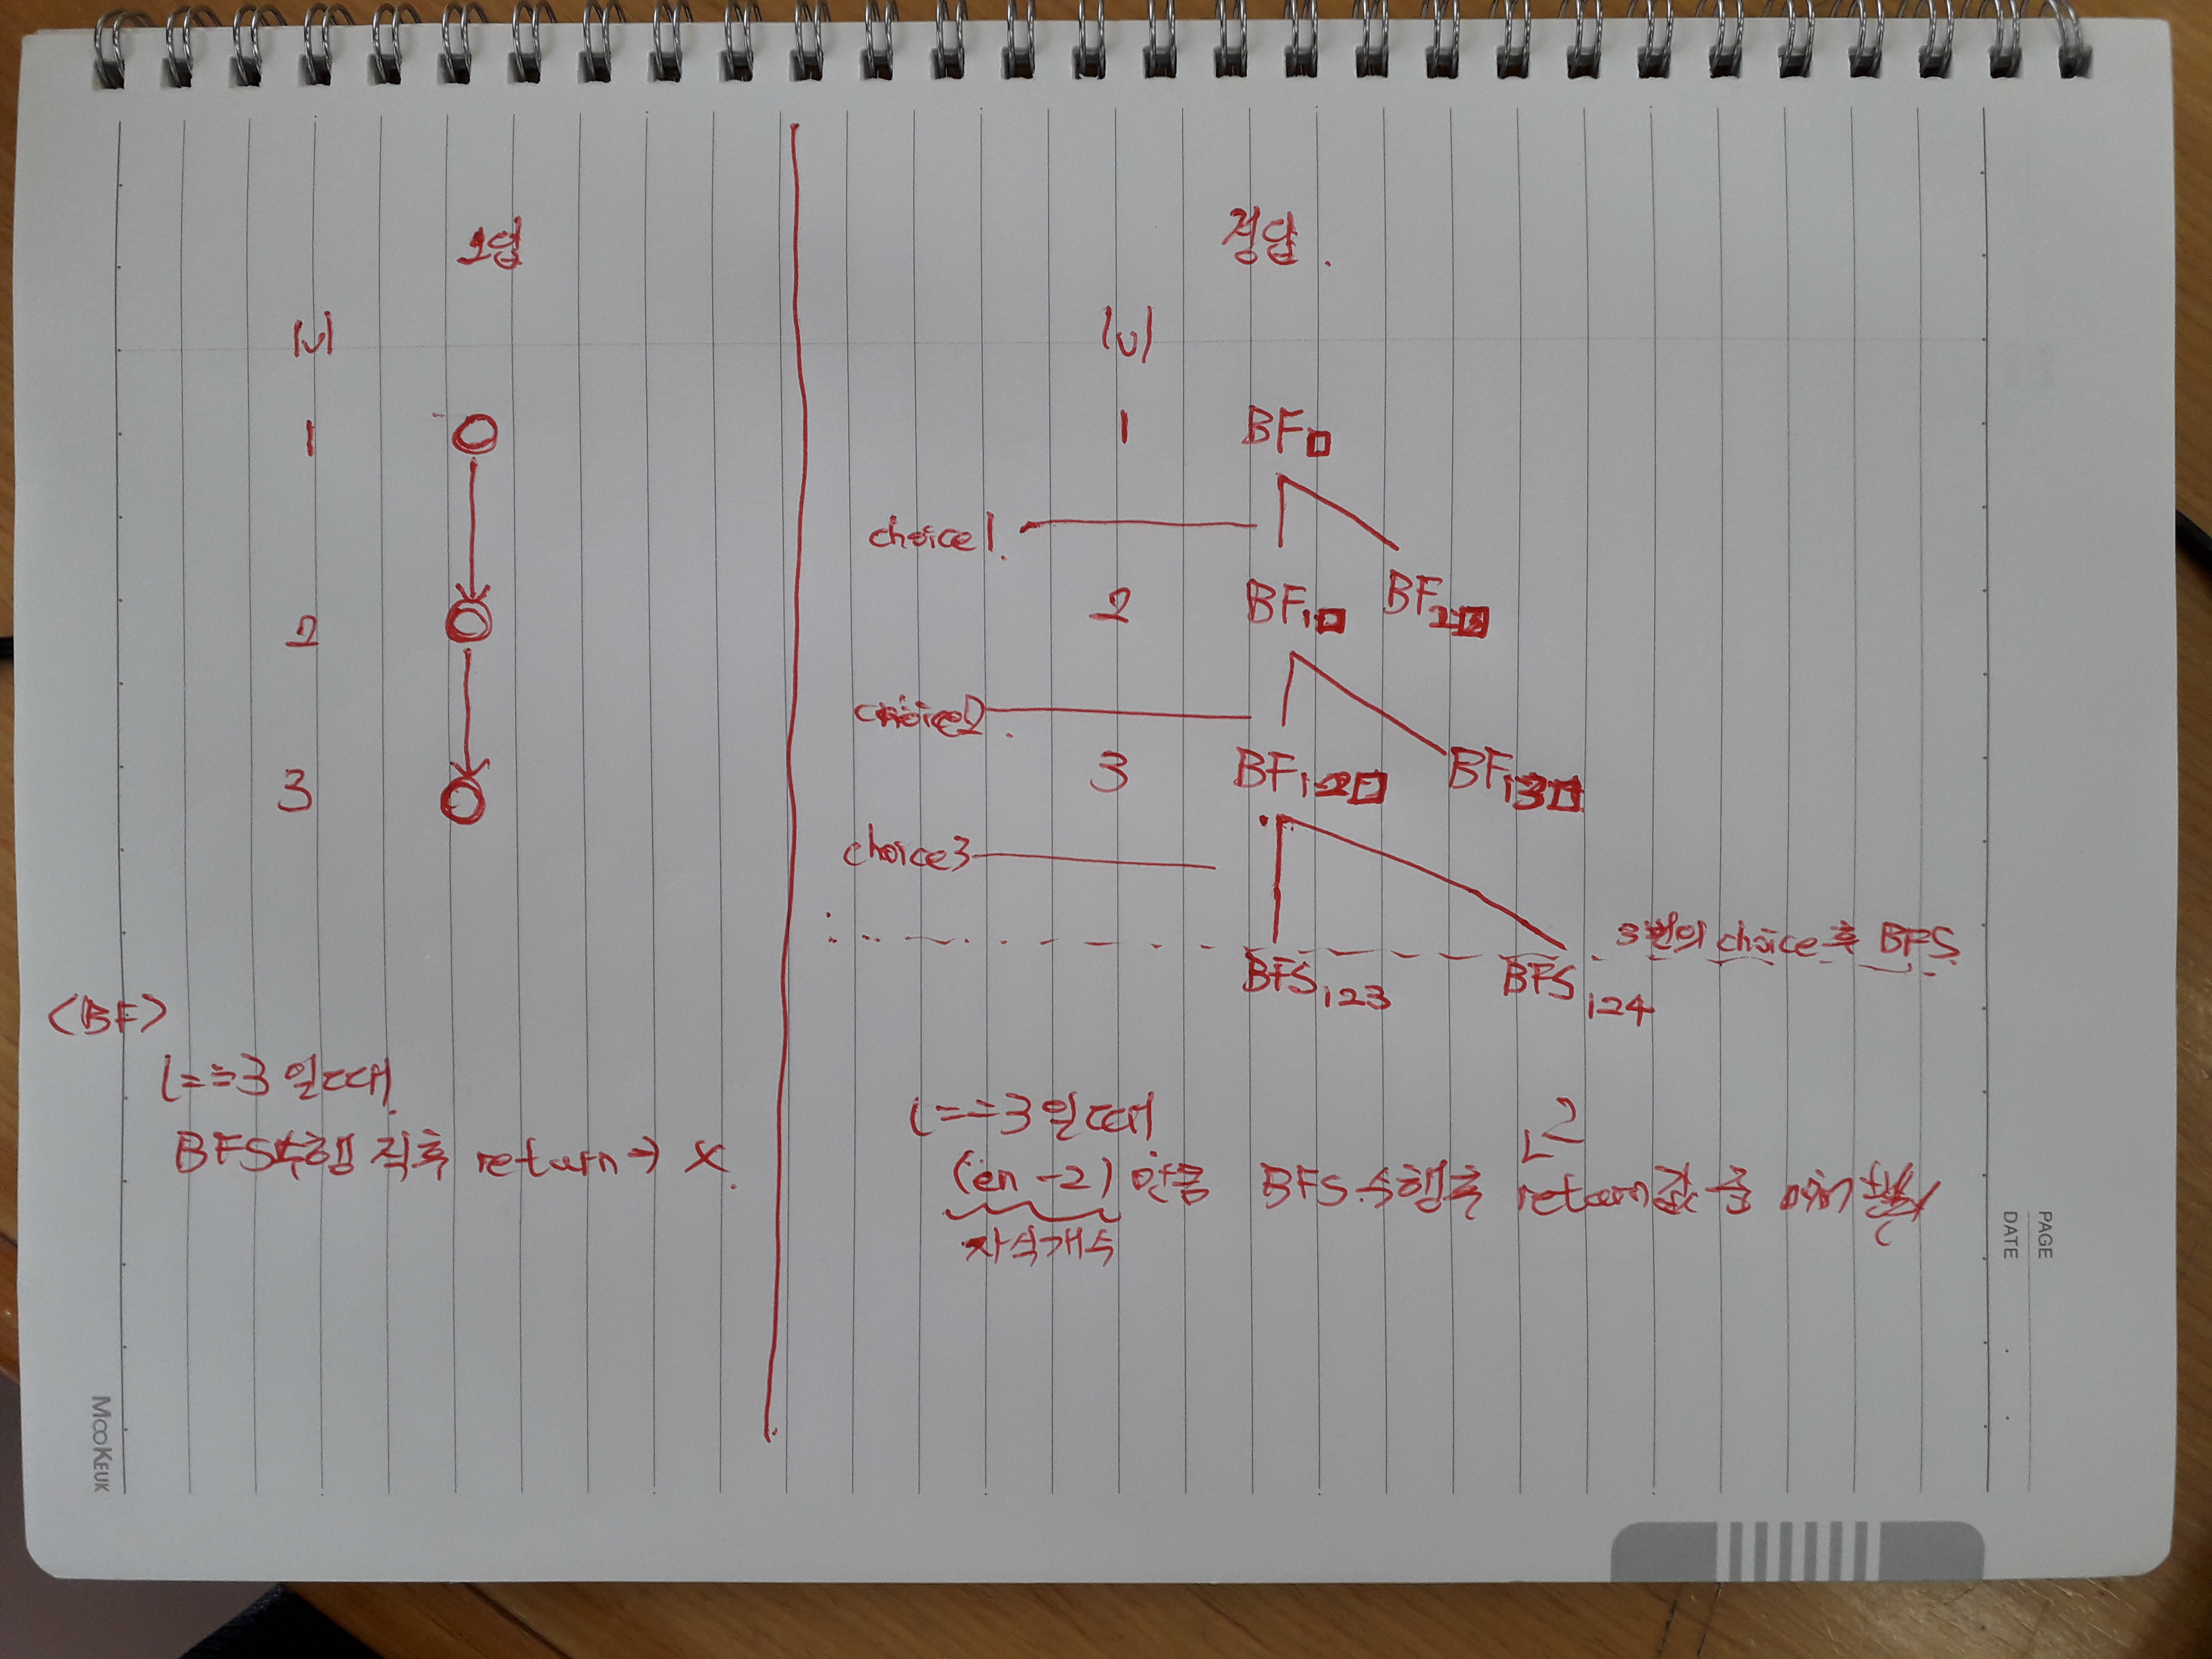 오답
lvl
1
2
3
<BF>
l==3 일때
BFS수행 직후 return → X.
정답.
lvl
1 BF□
choice1.
2 BF1□ BF2□
choice2.
3 BF12□ BF13□
choice3
3번의 choice후 BFS.
BFS123 BFS124
l==3일때
(en-2)만큼 BFS.수행후 return값 중
자식개수
PAGE
DATE
MOOKEUK